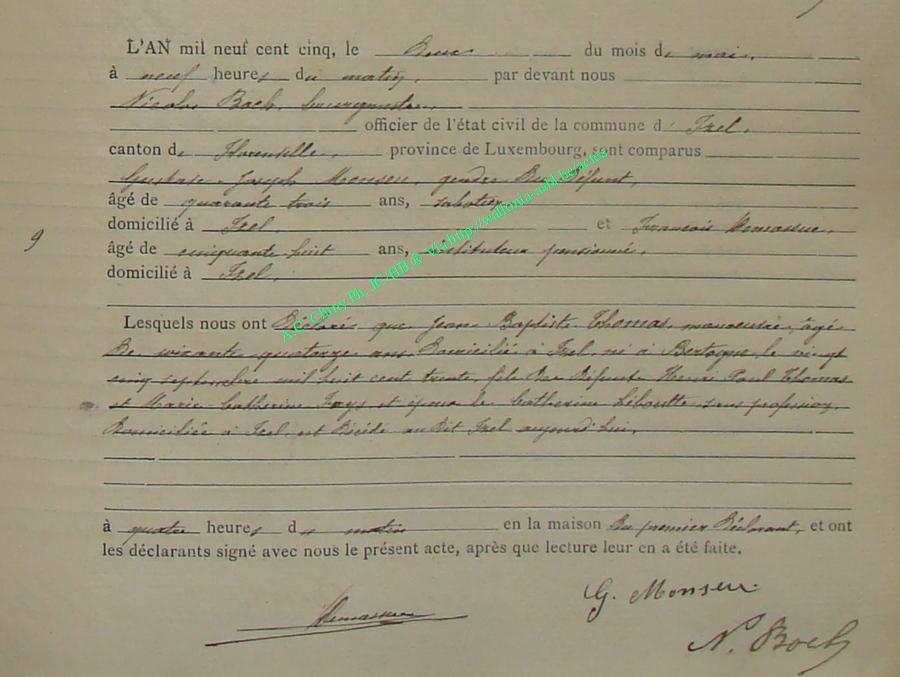 L'AN mil neuf cent cinq, le deux du mois de mai,
à neuf heures du matin, par devant nous
Nicolas Bach, bourgmestre,
officier de l'état civil de la commune d' Izel,
canton de Florenville, province de Luxembourg, sont comparus
Gustave Joseph Monseu, gendre du défunt,
âgé de quarante trois ans, sabotier
domicilié à Izel et François
9
âgé de cinquante huit ans, instituteur pensionné,
domicilié à Izel,
Lesquels nous ont déclaré que Jean Baptiste Thomas, manoeuvre, âgé
de soixante quatorze ans, domicilié à Izel, né à Bertogne, le vingt
cinq septembre mil huit cent trente, fils des défunts Henri Paul Thomas
et Marie Catherine Fays et époux de Catherine Leboutte sans profession,
domiciliée à Izel, est décédé au dit Izel aujourd'hui,
à quatre heures du matin en la maison du premier déclarant, et ont
les déclarants signé avec nous le présent acte, après que lecture leur en a été faite.
G. Monseu
N. Bach